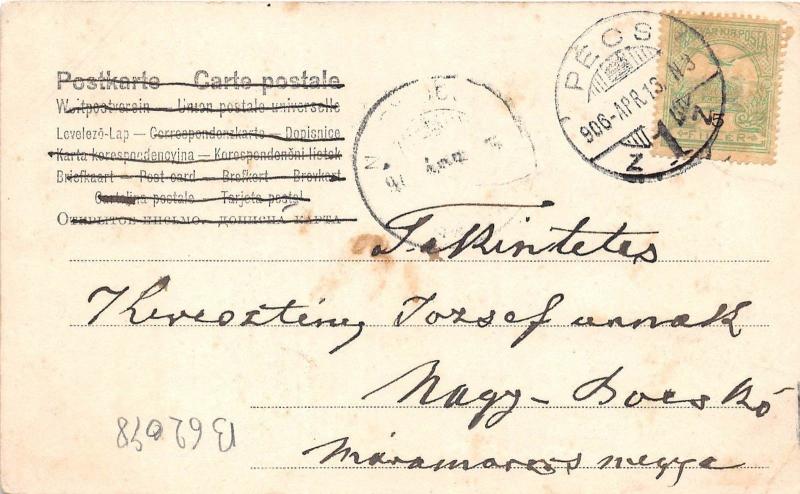 Postkarte Carte postale
Weltpostverein — Union postale universelle
Levelező-Lap — Correspondenzkarte — Dopisnice
Karta korespondencyjna — Korespondenční lístek
Briefkaart — Post card — Brefkort — Brevkort
Cartolina postale — Tarjeta postal
Открытое письмо. ДОПИСНА КАРТА
PÉCS
906-APR.13.
MAGYAR KIR. POSTA
5
FILLÉR
Tekintetes
Keresztény Jozsef urnak
Nagy-Bocskó
Máramaros megye
B62078